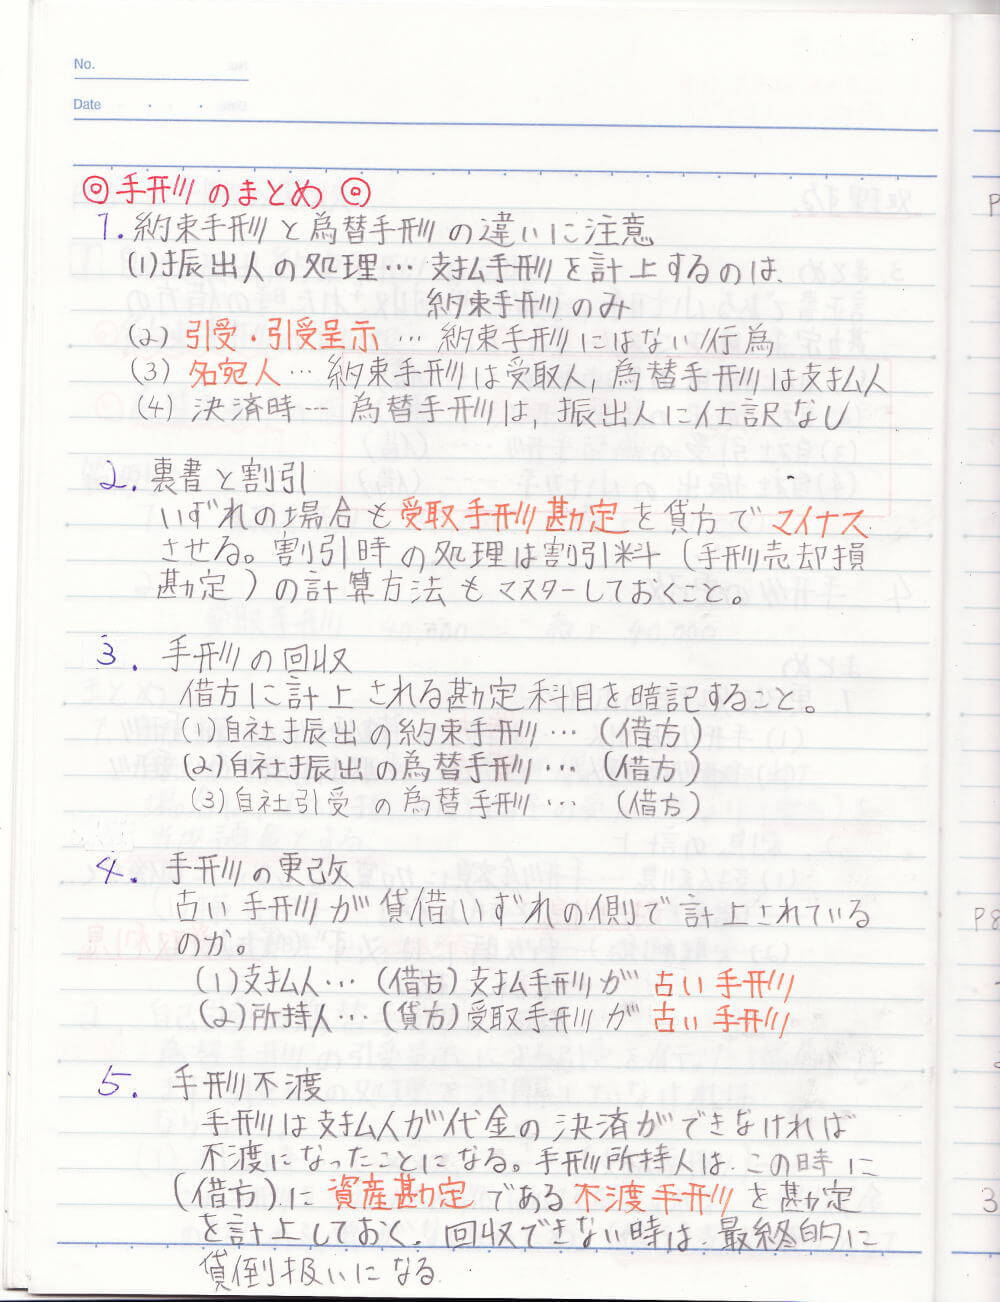 No.
Date
◎手形のまとめ◎
1. 約束手形と為替手形の違いに注意
(1)振出人の処理… 支払手形を計上するのは、
約束手形のみ
(2) 引受・引受呈示 … 約束手形にはない行為
(3) 名宛人 … 約束手形は受取人, 為替手形は支払人
(4) 決済時… 為替手形は, 振出人に仕訳なし
2. 裏書と割引
いずれの場合も受取手形勘定を貸方でマイナス
させる。割引時の処理は割引料(手形売却損
勘定)の計算方法もマスターしておくこと。
3. 手形の回収
借方に計上される勘定科目を暗記すること。
(1)自社振出の約束手形… (借方)
(2)自社振出の為替手形… (借方)
(3)自社引受の為替手形… (借方)
4. 手形の更改
古い手形が貸借いずれの側で計上されている
のか。
(1)支払人… (借方)支払手形が 古い手形
(2)所持人… (貸方)受取手形が 古い手形
5. 手形不渡
手形は支払人が代金の決済ができなければ
不渡になったことになる。手形所持人は、この時に
(借方)に資産勘定である不渡手形を勘定
を計上しておく。回収できない時は、最終的に
貸倒扱いになる
P
P8
3